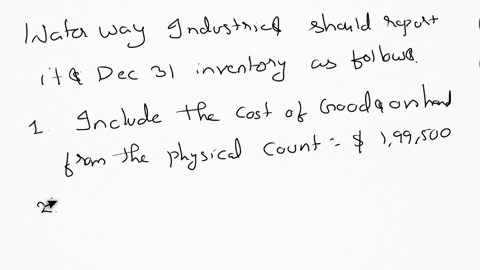 Water way Industries should report
its Dec 31 inventory as follows.
1. Include the cost of Goods on hand
from the physical count :- $ 1,99,500
2.